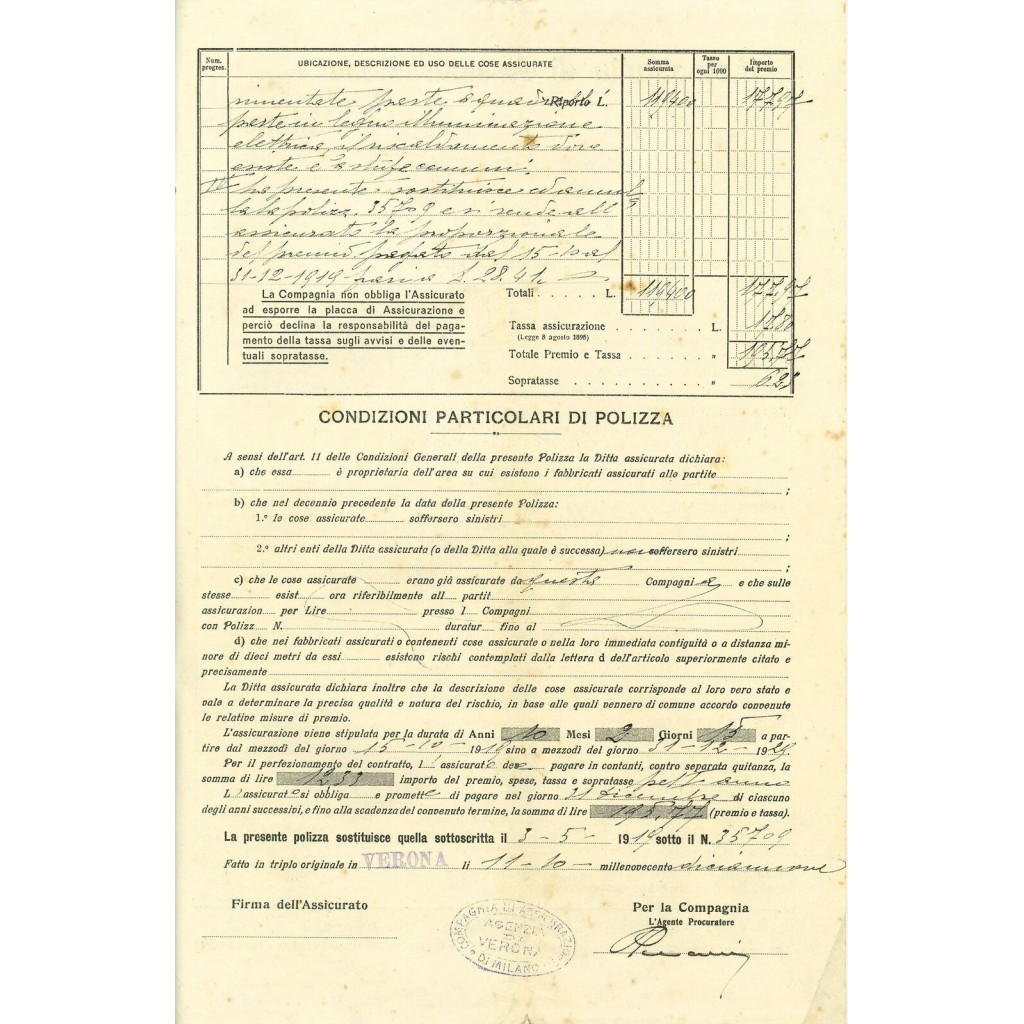 Num. progres. UBICAZIONE, DESCRIZIONE ED USO DELLE COSE ASSICURATE Somma assicurata Tasso per ogni 1000 Importo del premio
Riporto L. 119400 177,97
peste in legno illuminazione
elettrica, il riscaldamento dove
esiste è a stufe comuni.
La presente sostituisce ed annul
la la polizz. 35709 e si rende all
assicurato la proporzionale
del premio pagato dal 15-10 al
31-12-1919 pari a L. 28.41
La Compagnia non obbliga l'Assicurato
ad esporre la placca di Assicurazione e
perciò declina la responsabilità del paga-
mento della tassa sugli avvisi e delle even-
tuali sopratasse.
Totali . . . . . . L. 119400 177,97
Tassa assicurazione . . . . . . . L. 17.80
(Legge 8 agosto 1896)
Totale Premio e Tassa . . . . . . . " 195,77
Sopratasse . . . . . . . . . . " 6.25
CONDIZIONI PARTICOLARI DI POLIZZA
A sensi dell'art. 11 delle Condizioni Generali della presente Polizza la Ditta assicurata dichiara:
a) che essa è proprietaria dell'area su cui esistono i fabbricati assicurati alle partite
;
b) che nel decennio precedente la data della presente Polizza:
1.º le cose assicurate soffersero sinistri
;
2.º altri enti della Ditta assicurata (o della Ditta alla quale è successa) non soffersero sinistri
;
c) che le cose assicurate erano già assicurate da questa Compagni a e che sulle
stesse esist ora riferibilmente all partit
assicurazion per Lire presso l Compagni
con Polizz N. duratur fino al
d) che nei fabbricati assicurati o contenenti cose assicurate o nella loro immediata contiguità o a distanza mi-
nore di dieci metri da essi esistono rischi contemplati dalla lettera d dell'articolo superiormente citato e
precisamente
La Ditta assicurata dichiara inoltre che la descrizione delle cose assicurate corrisponde al loro vero stato e
vale a determinare la precisa qualità e natura del rischio, in base alle quali vennero di comune accordo convenute
le relative misure di premio.
L'assicurazione viene stipulata per la durata di Anni 10 Mesi 2 Giorni 15 a par-
tire dal mezzodì del giorno 15-10-1919 sino a mezzodì del giorno 31-12-1929.
Per il perfezionamento del contratto, l' assicurato deve pagare in contanti, contro separata quitanza, la
somma di lire 12,33 importo del premio, spese, tassa e sopratasse pel 1º anno
L'assicurato si obbliga e promette di pagare nel giorno 31 dicembre di ciascuno
degli anni successivi, e fino alla scadenza del convenuto termine, la somma di lire 195,77 (premio e tassa).
La presente polizza sostituisce quella sottoscritta il 3-5-1919 sotto il N. 35709
Fatto in triplo originale in VERONA li 11-10- millenovecento diciannove
Firma dell'Assicurato
Per la Compagnia
L'Agente Procuratore
COMPAGNIA DI ASSICURAZIONE DI MILANO
AGENZIA
DI
VERONA